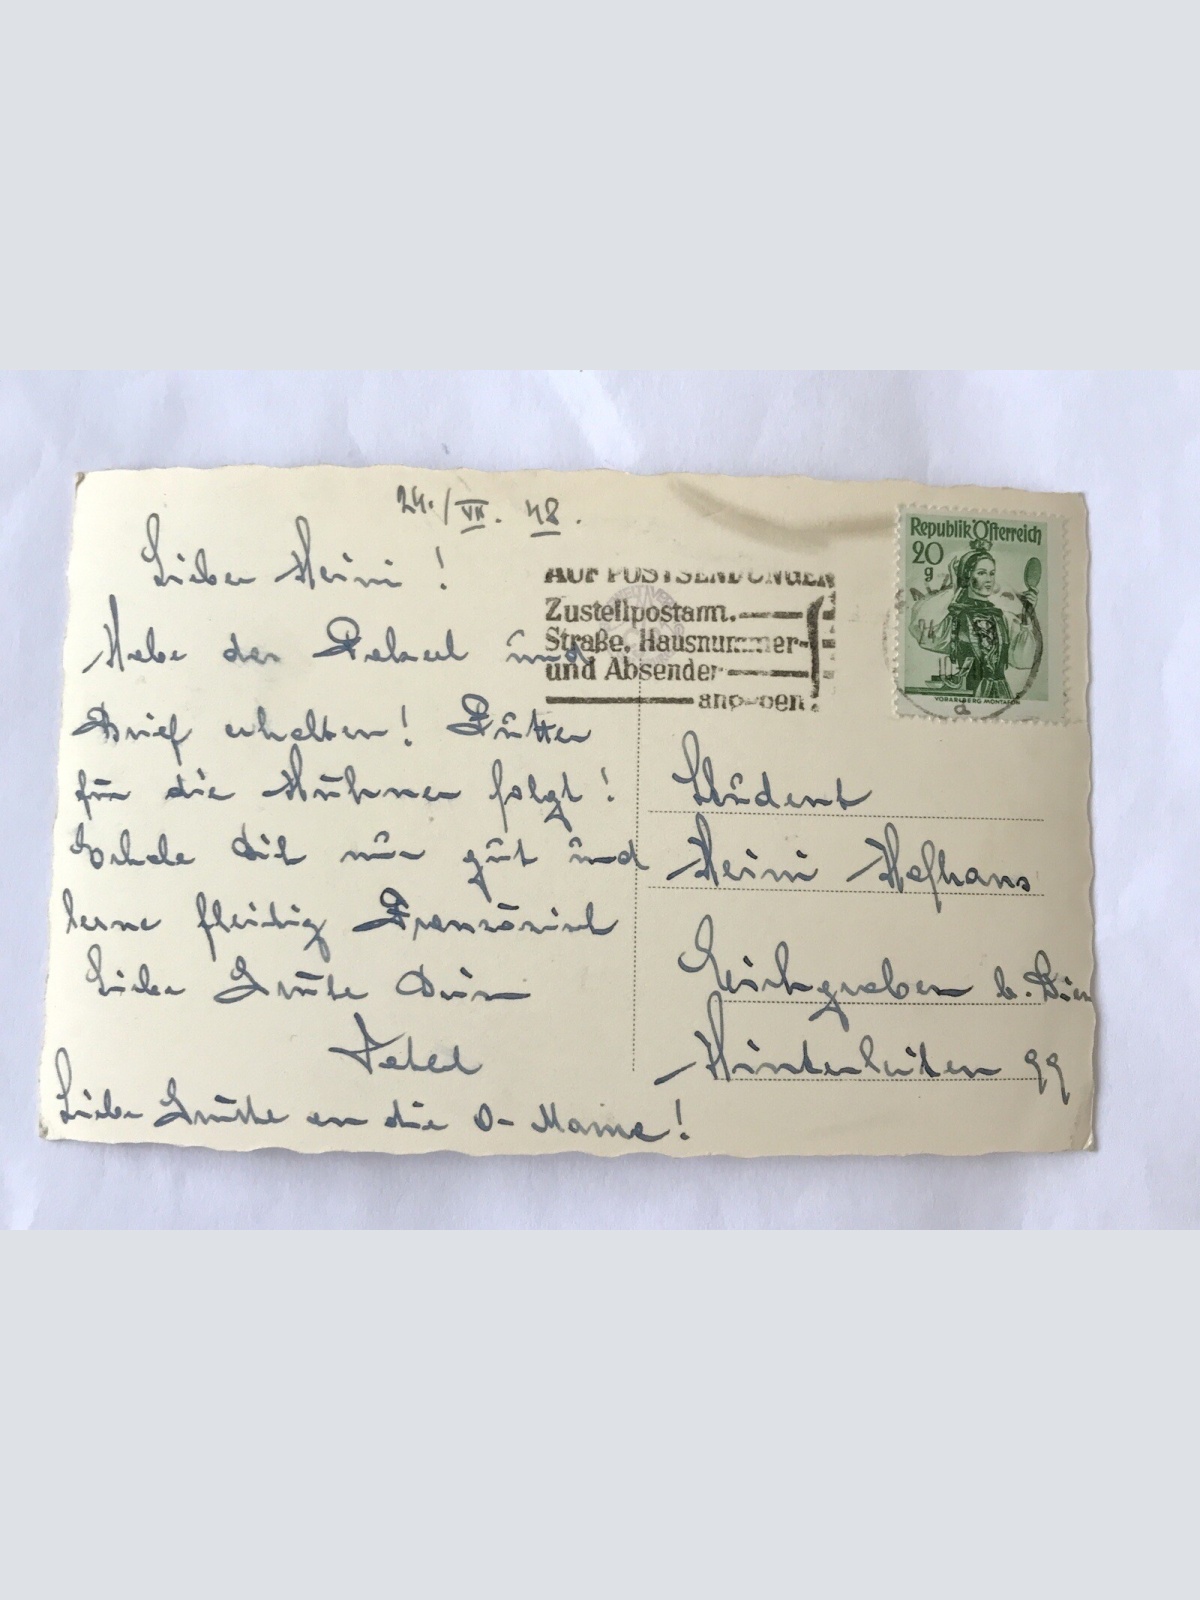 24./VII. 48.
Lieber Heini!
Habe das Paket und
Brief erhalten! Futter
für die Hühner folgt!
Erhole Dich nur gut und
lerne fleißig Französisch
Liebe Grüße Dein
Liebe Grüße an die O-Mama!
AUF POSTSENDUNGEN
Zustellpostamt.
Straße, Hausnummer
und Absender
angeben!
Republik Österreich
20
g
VORARLBERG MONTAFON
24
10
a
Student
Heini Hofhans
Eichgraben b. Wien
Hinterleiten 99